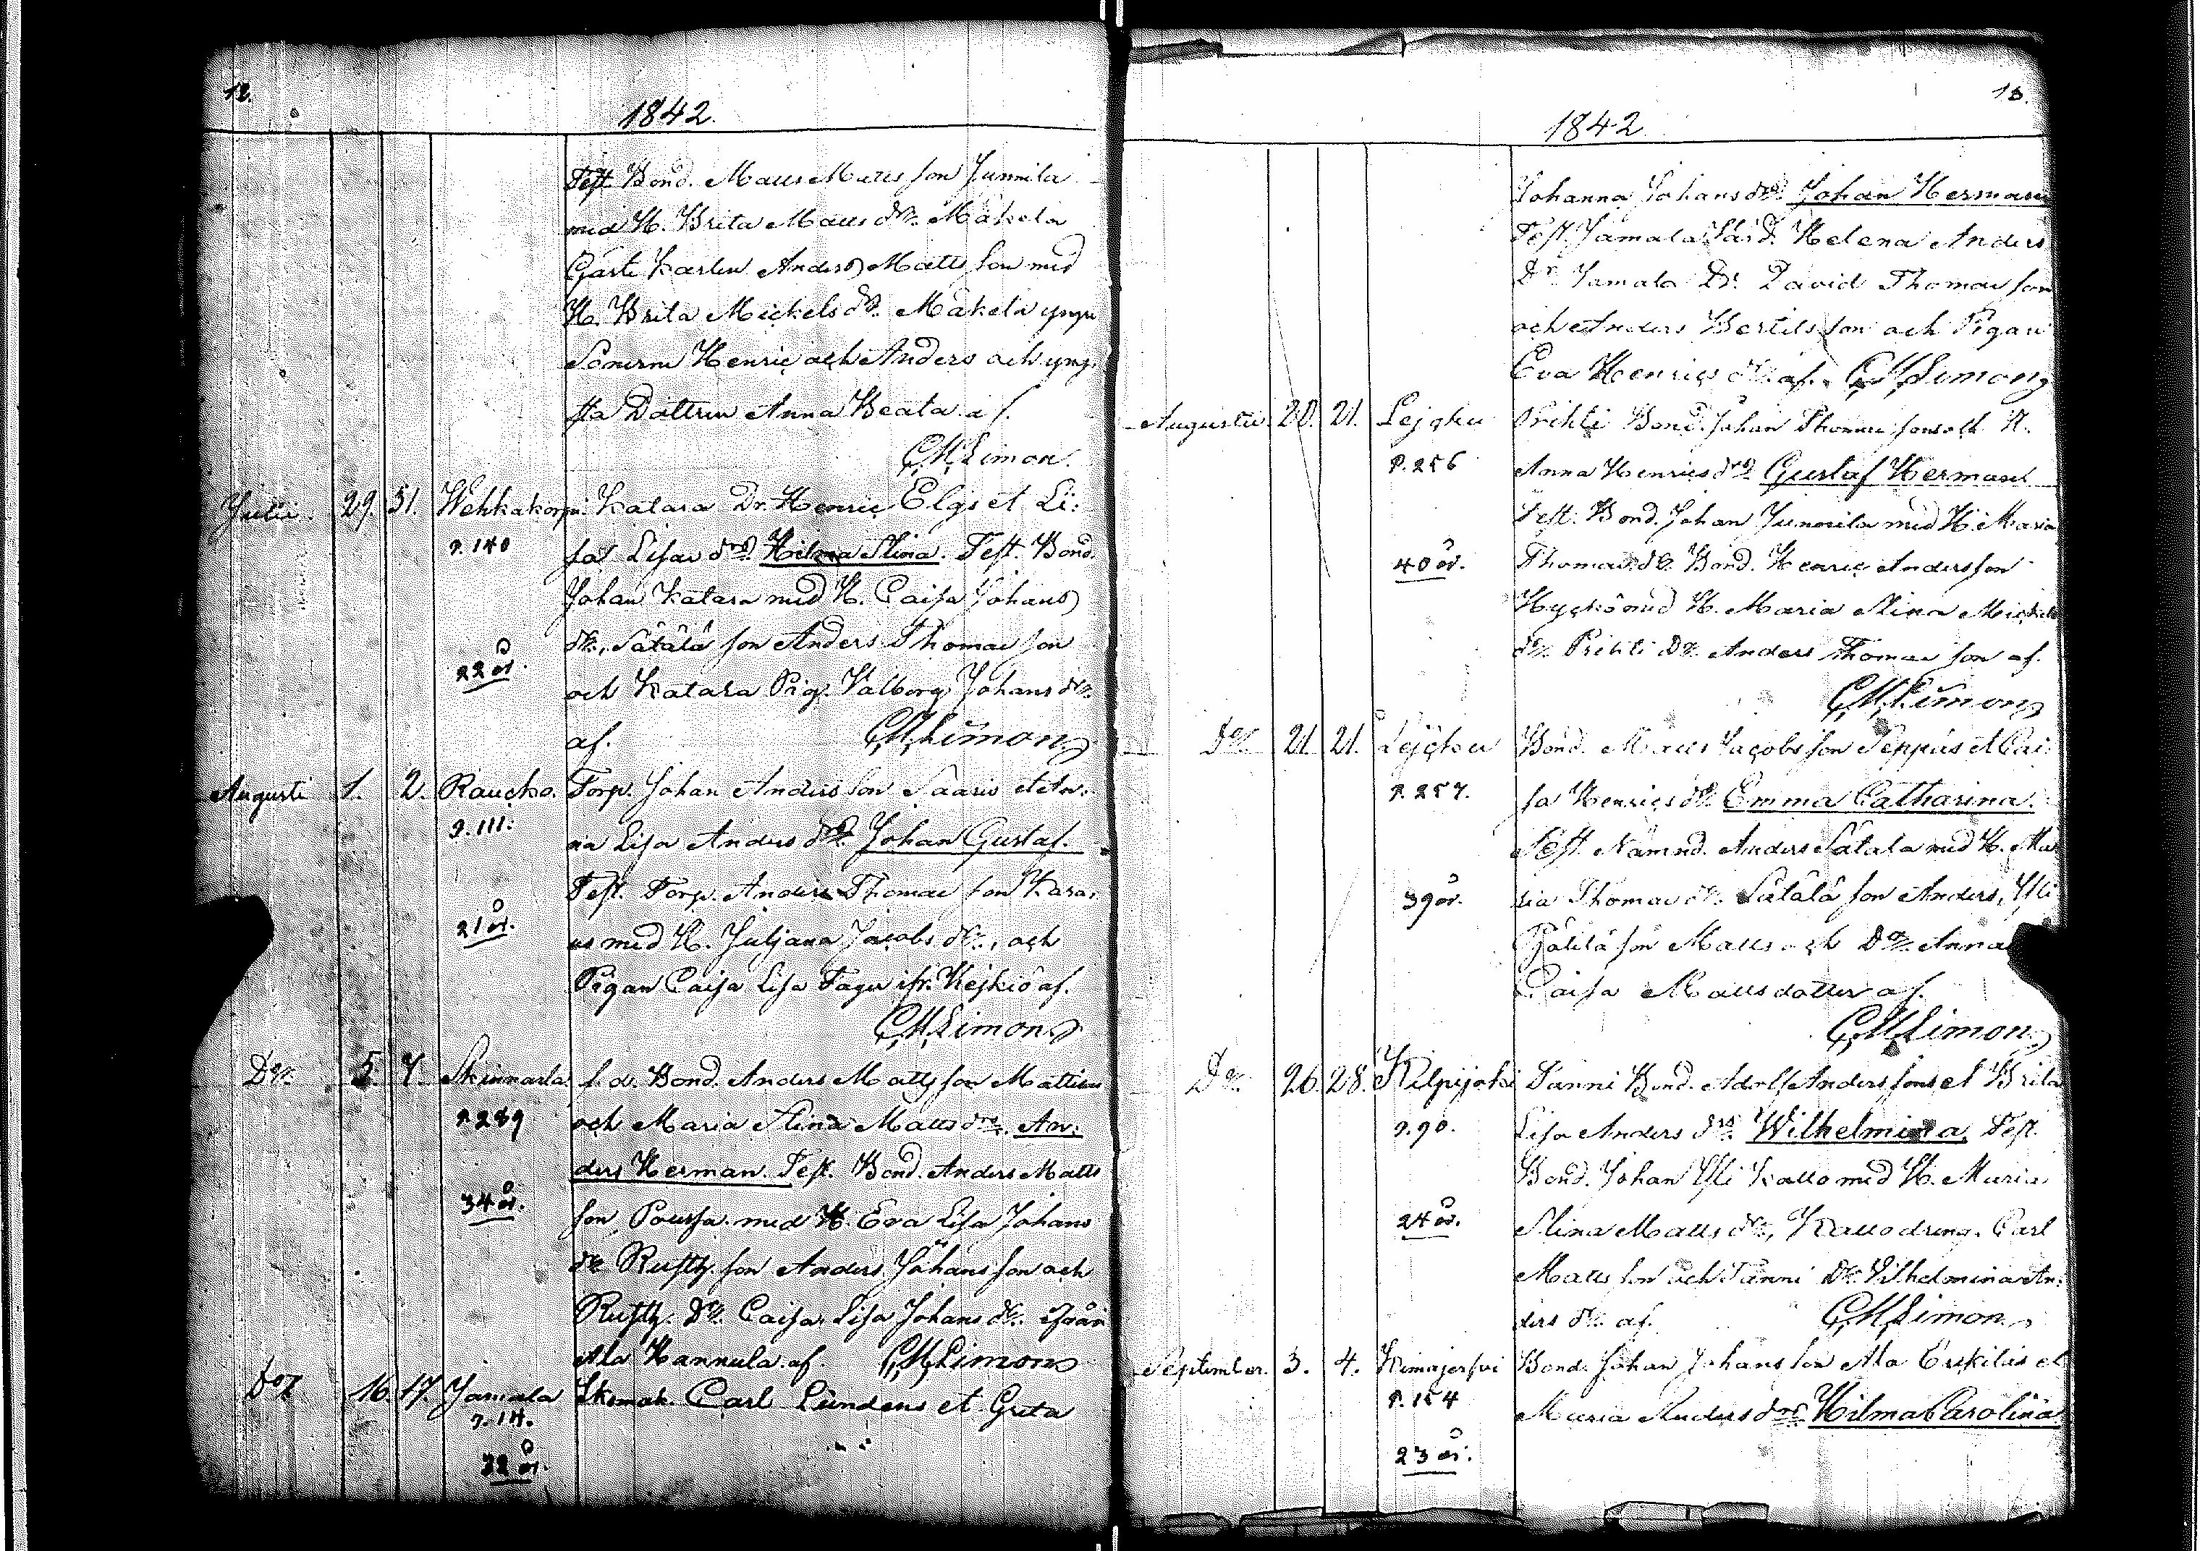 12.
1842.
Test. Bond. Matts Matts son Junnila
med H. Brita Matts dr. Mäkelä
Anders Matts son med
H. Brita Mickels dr. Mäkelä yngre
Sönerne Henric och Anders och yng.
sta Dottren Anna Beata af.
C.M.Limon.
Julii. 29. 31. Wehkakorpi. Katara Dr. Henric Elgs et Li:
p. 140 sas Lisas drs. Hilma Stina. Test. Bond.
Johan Katara med H. Caisa Johans
22 år. dr., Sätälä son Anders Thomas son
och Katara Pig. Valborg Johans dr.
af. C.M.Limon
Augusti 1. 2. Raucko. Torp. Johan Anders son Saaris et An-
p. 111: na Lisa Anders drs. Johan Gustaf.
Test. Torp. Anders Thomas son
21 år. med H. Juljana Jacobs dr., och
Pigan Caisa Lisa ifr. af.
C.M.Limon
Do. 5. 7. Skinnarla. f.d. Bond. Anders Matts son
p. 289 och Maria Stina Matts drs. An:
ders Herman. Test. Bond. Anders Matts
34 år. son Poussa med H. Eva Lisa Johans
dr. son Anders Johans son och
Dr. Caisa Lisa Johans dr. ifrån
Ala Hannula af. C.M.Limon
Do. 16. 17. Jamala Skomak. Carl Lundens et Greta
p. 14.
32 år.
13.
1842
Johanna Johans drs. Johan Herman
Test. Jamala Helena Anders
Dr. Jamala Dr. David Thomas son
och Anders Bertils son och Pigan
Eva Henrics dr. af. C.M.Limon
Augusti. 20. 21. Prihti Bond. Johan Thomas sons och H.
p. 256 Anna Henrics drs. Gustaf Herman
Test. Bond. Johan Junnila med H. Maria
40 år. Thomas dr. Bond. Henric Anders son
med H. Maria Stina Mickels
dr. Prihti Dr. Anders Thomas son af.
C.M.Limon
Do. 21. 21. Bond. Matts Jacobs son Seppäs et Cai:
p. 257. sa Henrics drs. Emma Catharina.
Test. Nämnd. Anders Sätälä med H. Ma
39 år. ria Thomas dr. Sätälä son Anders, Yli
son Matts och Dr. Anna
Caisa Matts dotter af.
C.M.Limon.
Do. 26. 28. Kilpijoki Tanni Bond. Adolf Anders sons et Brita
p. 90. Lisa Anders drs. Wilhelmina. Test.
Bond. Johan Yli Kallo med H. Maria
24 år. Stina Matts dr., Kallo dreng. Carl
Matts son och Tanni Dr. Vilhelmina An:
ders dr. af. C.M.Limon.
September. 3. 4. Kimajersvi Bond. Johan Johans son Ala Erkiläs et
p. 154 Maria Anders drs. Hilma Carolina
23 år.